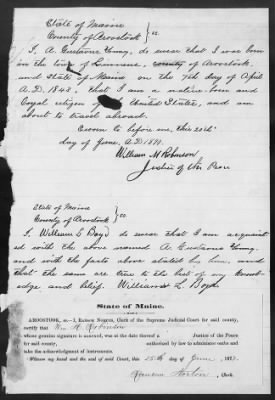 State of Maine
County of Aroostook } ss.
I, A. Gustavus Young, do swear that I was born
in the town of Limerick, county of Aroostook,
and State of Maine on the 7th day of April
A.D. 1842, that I am a native born and
loyal citizen of the United States, and am
about to travel abroad.
Sworn to before me, this
day of June, A.D. 1871.
William M Robinson
Justice of the Peace
State of Maine
County of Aroostook } ss
I, William S Boyd do swear that I am acquaint
ed with the above named A. Gustavus Young,
and with the facts above stated by him, and
that the same are true to the best of my knowl-
edge and belief. William S. Boyd
State of Maine.
AROOSTOOK, ss.—I, RANSOM NORTON, Clerk of the Supreme Judicial Court for said county,
certify that Wm. M. Robinson
whose genuine signature is annexed, was at the date thereof a Justice of the Peace
for said county, authorized by law to administer oaths and
take the acknowledgment of instruments.
Witness my hand and the seal of said Court, this 25th day of June, 1871.
Ransom Norton, Clerk.